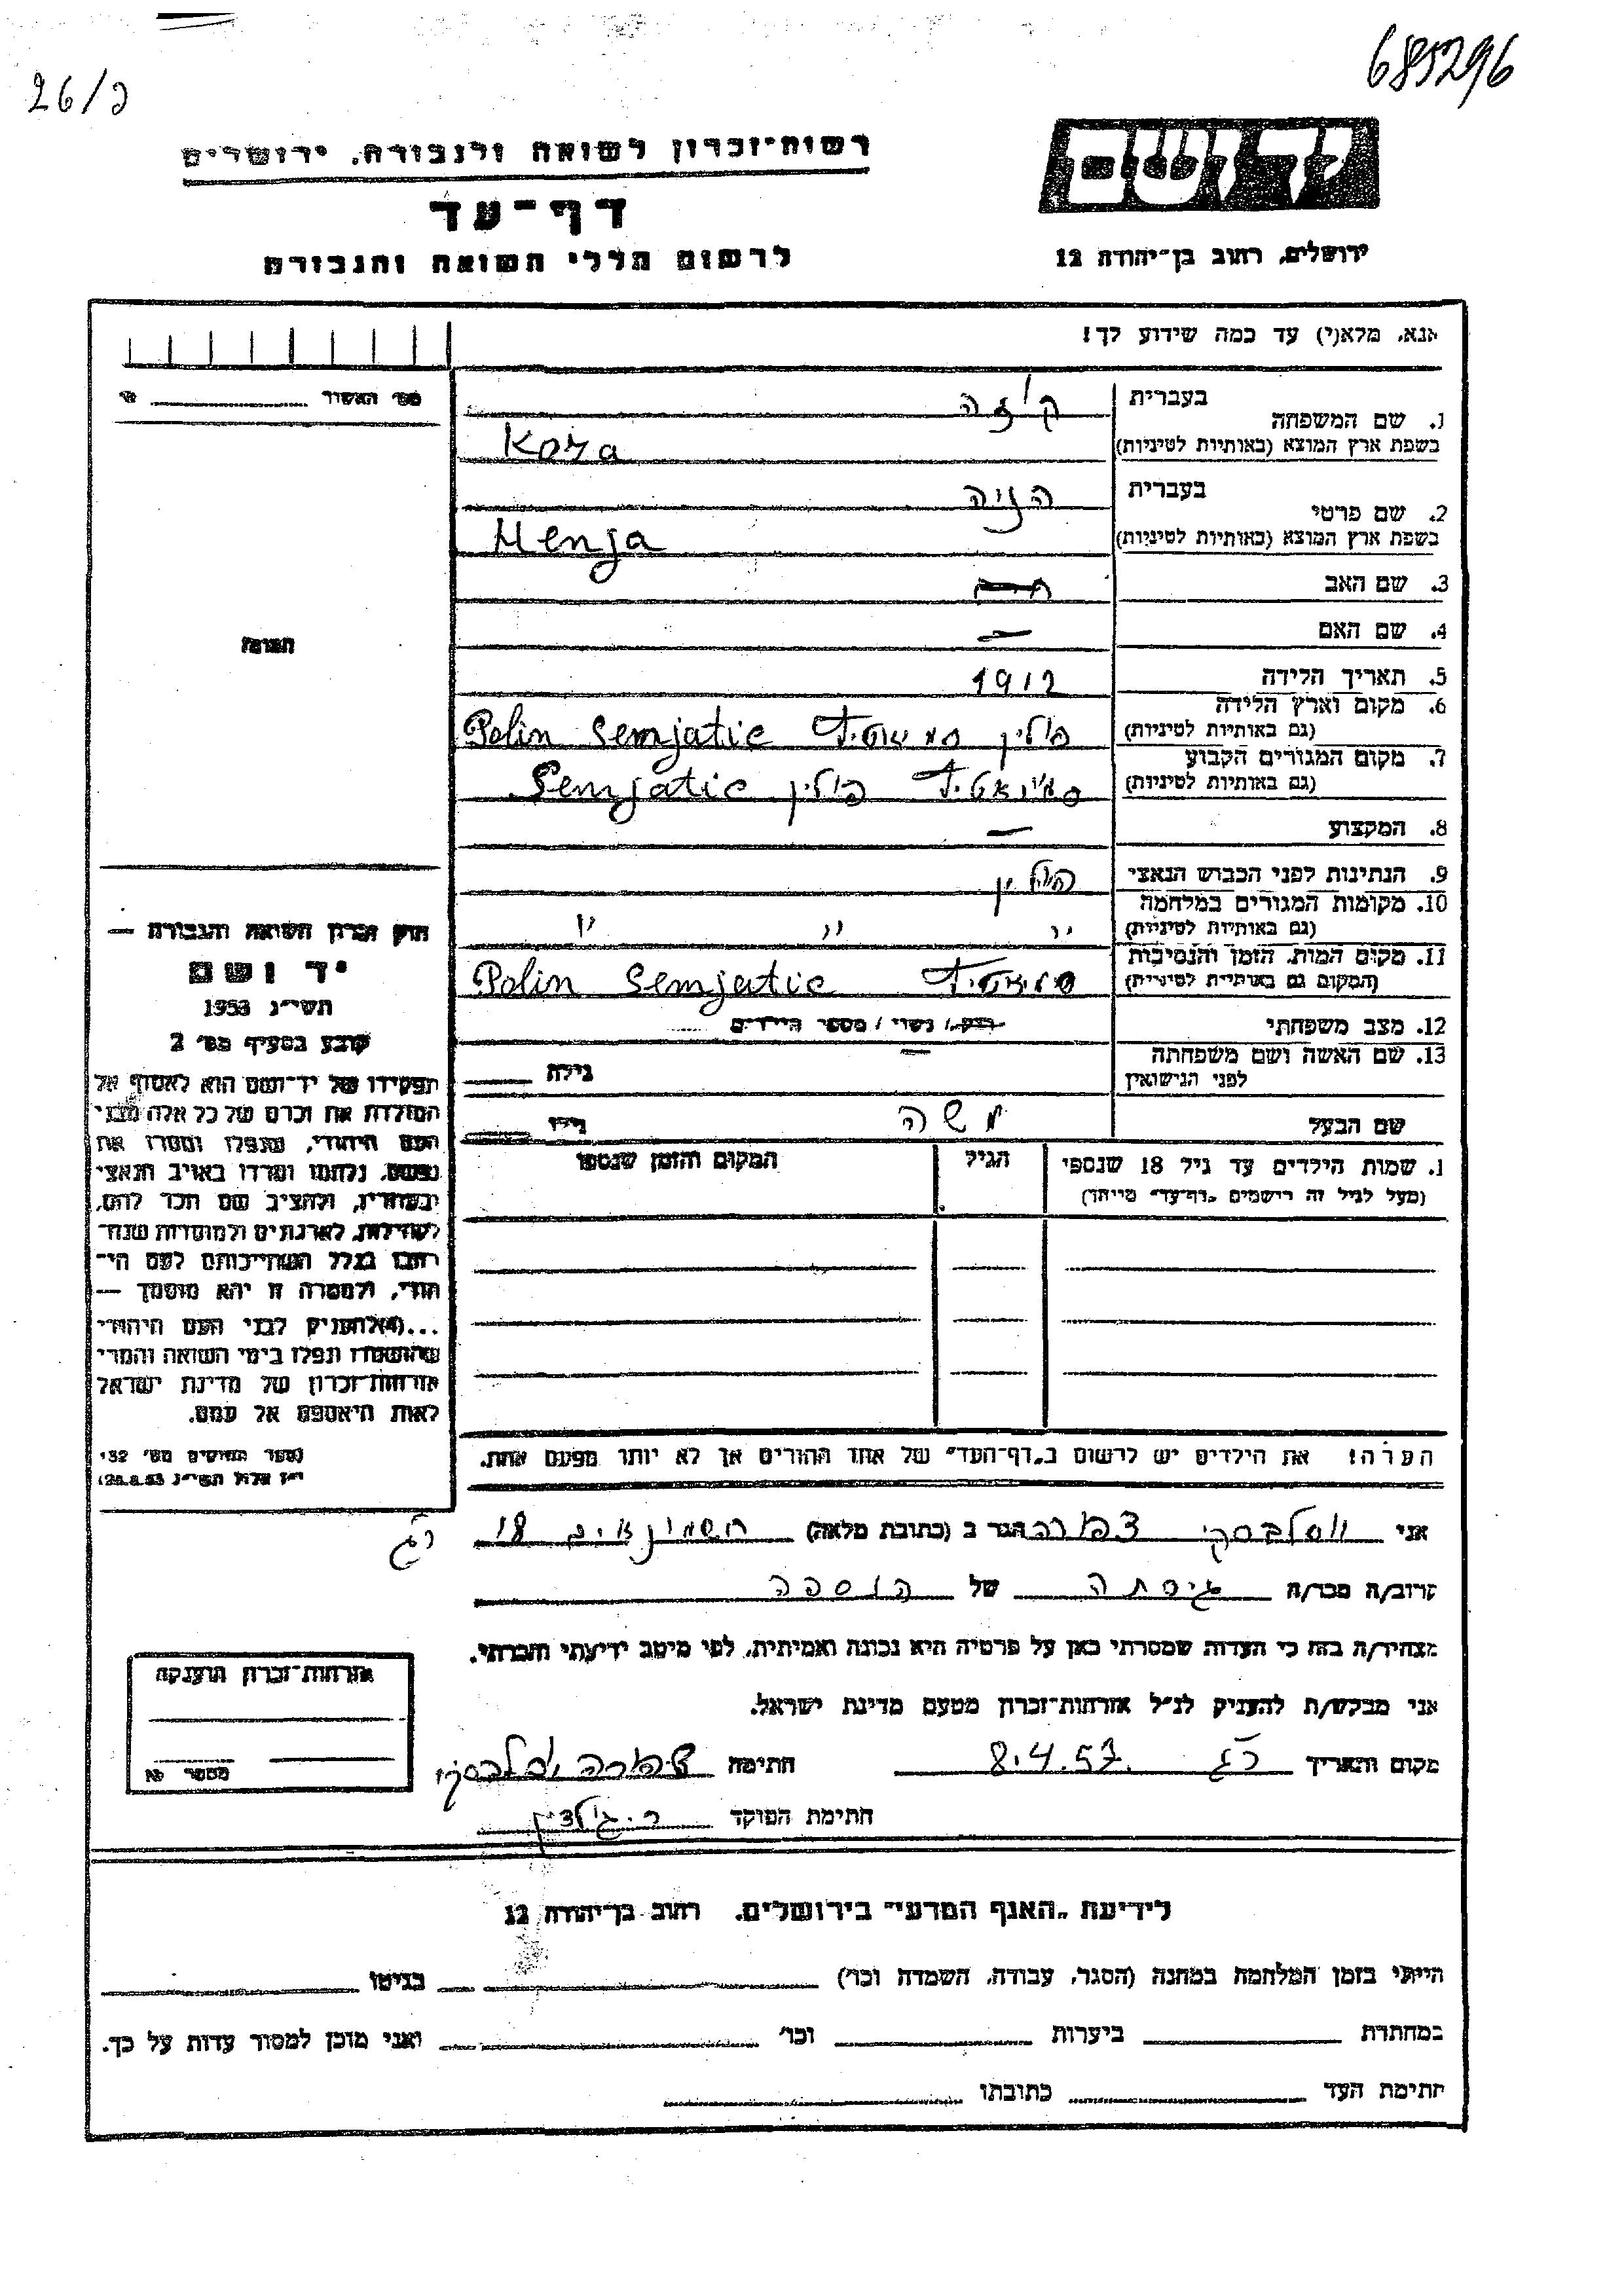 685296
26/כ
יד ושם
ירושלים, רחוב בן־יהודה 12
רשות־זכרון לשואה ולגבורה, ירושלים
דף־עד
לרשום חללי השואה והגבורה
אנא, מלא(י) עד כמה שידוע לך!
מס' האשור
1. שם המשפחה בעברית קוזה
בשפת ארץ המוצא (באותיות לטיניות) Koza
2. שם פרטי בעברית הניה
בשפת ארץ המוצא (באותיות לטיניות) Henja
3. שם האב
4. שם האם —
5. תאריך הלידה 1912
6. מקום וארץ הלידה פולין Polin Semjatic
(גם באותיות לטיניות)
7. מקום המגורים הקבוע פולין Semjatic
(גם באותיות לטיניות)
8. המקצוע —
9. הנתינות לפני הכבוש הנאצי פולין
10. מקומות המגורים במלחמה " " "
(גם באותיות לטיניות)
11. מקום המות, הזמן והנסיבות Polin Semjatic
(המקום גם באותיות לטיניות)
12. מצב משפחתי רווק / נשוי / מספר הילדים
13. שם האשה ושם משפחתה — גילה
לפני הנישואין
שם הבעל משה גילו
1. שמות הילדים עד גיל 18 שנספו הגיל המקום והזמן שנספו
(מעל לגיל זה רישמים "דף־עד" מיוחד)
הערה! את הילדים יש לרשום ב"דף־העד" של אחד ההורים אך לא יותר מפעם אחת.
תמונה
חוק זכרון השואה והגבורה —
יד ושם
תשי"ג 1953
קובע בסעיף מס' 2
תפקידו של יד־ושם הוא לאסוף אל
המולדת את זכרם של כל אלה מבני
העם היהודי, שנפלו ומסרו את
נפשם, נלחמו ומרדו באויב הנאצי
ובעוזריו, ולהציב שם וזכר להם,
לקהילות, לארגונים ולמוסדות שנח־
רבו בגלל השתייכותם לעם הי־
הודי, ולמטרה זו יהא מוסמך —
...(4) להעניק לבני העם היהודי
שהושמדו ונפלו בימי השואה והמרי
אזרחות־זכרון של מדינת ישראל
לאות היאספם אל עמם.
(ספר החוקים מס' 132
י"ז אלול תשי"ג 28.8.53)
אני צפורה הגר ב (כתובת מלאה) חשמונאים 18 רג
קרוב/ה מכר/ה גיסתה של הנספה
מצהיר/ה בזה כי העדות שמסרתי כאן על פרטיה היא נכונה ואמיתית, לפי מיטב ידיעתי והכרתי.
אני מבקש/ת להעניק לנ"ל אזרחות־זכרון מטעם מדינת ישראל.
מקום ותאריך רג 8.4.57 חתימה צפורה
חתימת הפוקד
אזרחות־זכרון הוענקה
מספר №
לידיעת "האגף המדעי" בירושלים, רחוב בן־יהודה 12
הייתי בזמן המלחמה במחנה (הסגר, עבודה, השמדה וכו') בגיטו
במחתרת ביערות וכו' ואני מוכן למסור עדות על כך.
חתימת העד כתובתו